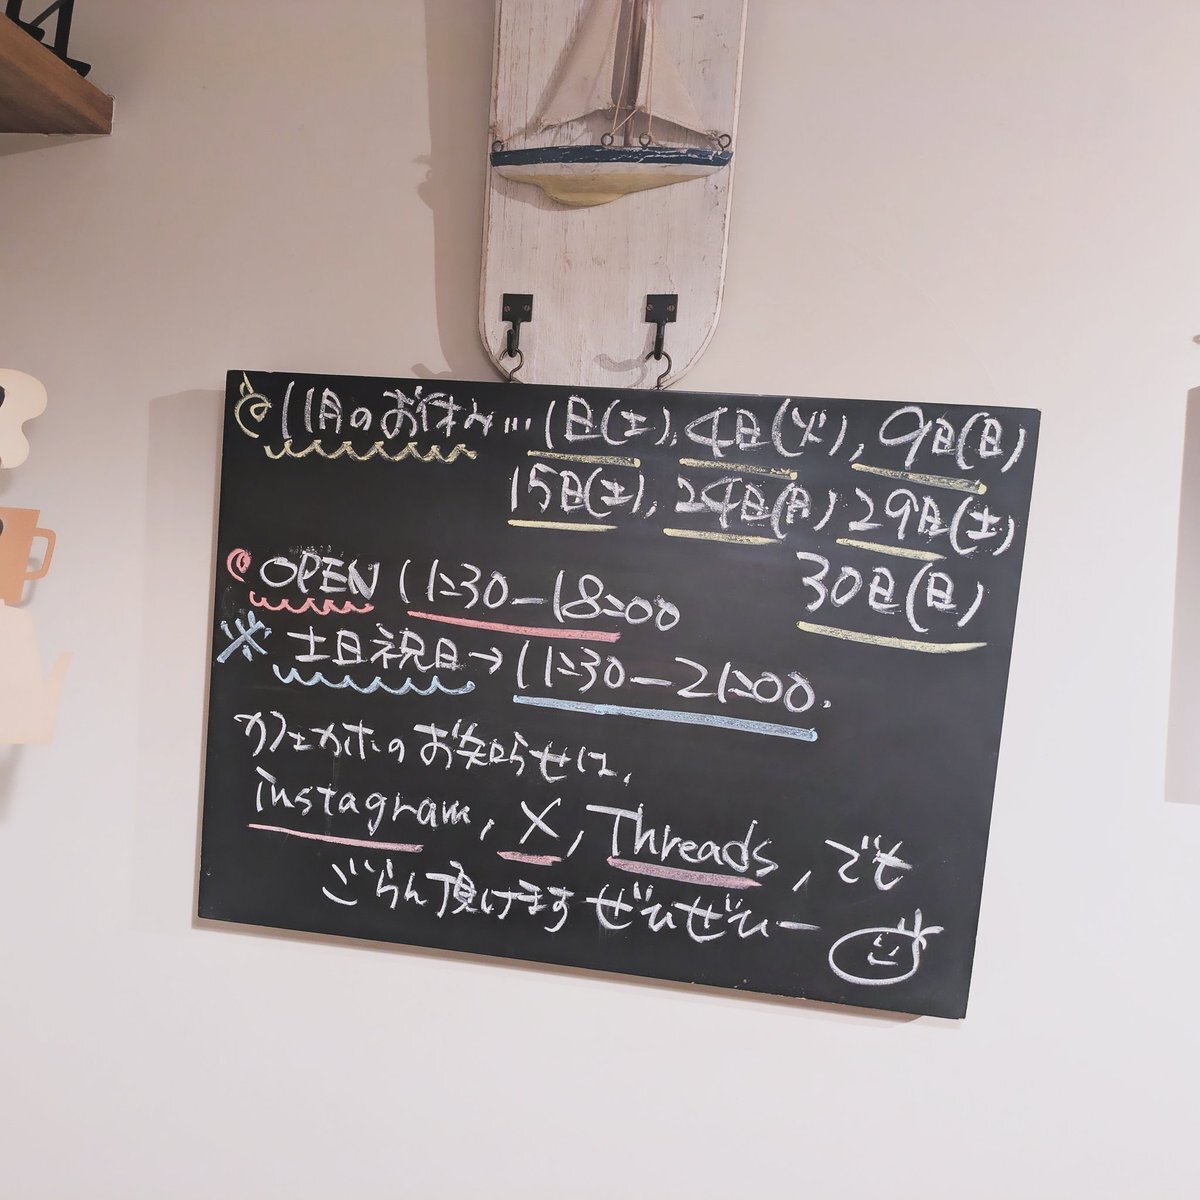 11月のお休み…1日(土)、4日(火)、9日(日)
15日(土)、24日(月)29日(土)
30日(日)
OPEN 11:30-18:00
※ 土日祝日→11:30-21:00.
カフェカホのお知らせは、
instagram, X, Threads, でも
ごらん頂けます ぜひぜひー